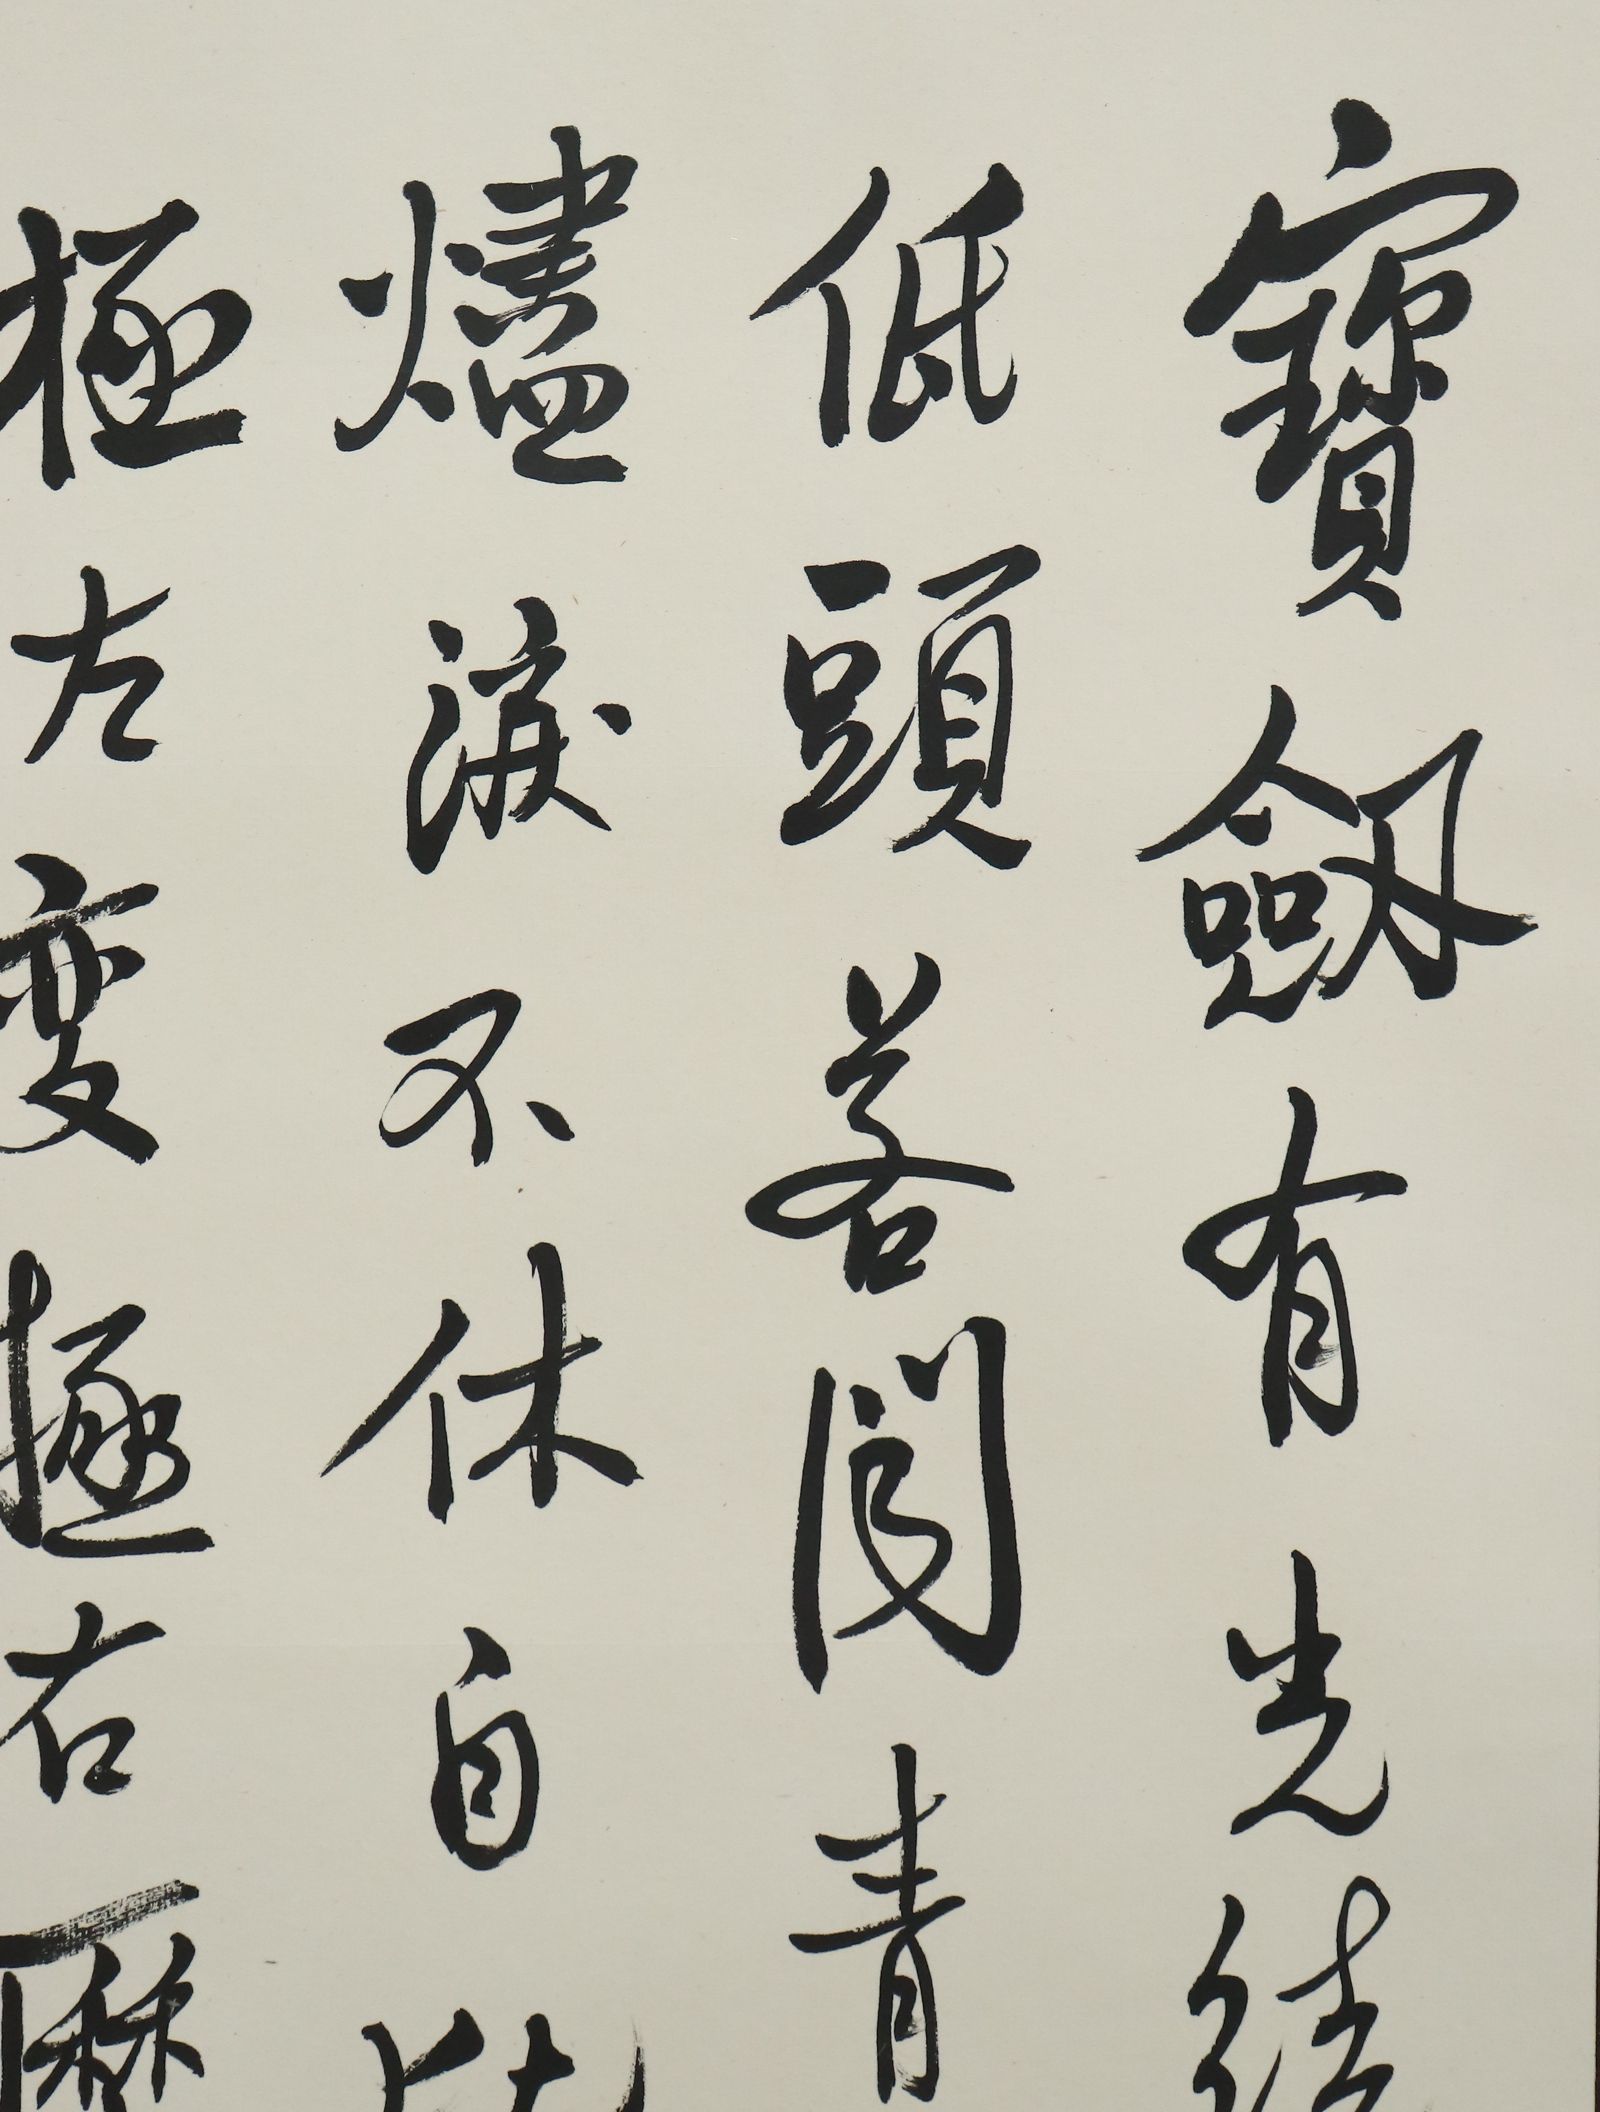 寶劔有光
低頭若閔青
燼淚不休自
極左變極右歷